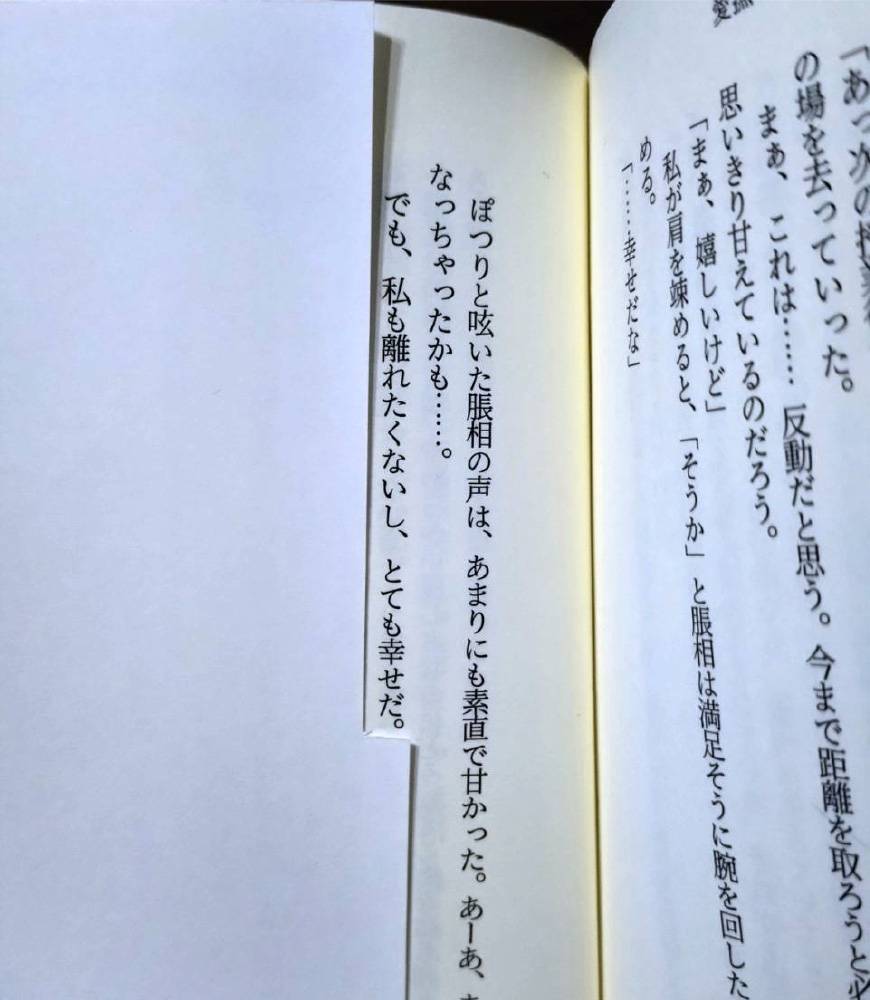 「あっ次の授業
の場を去っていった。
まぁ、これは……反動だと思う。今まで距離を取ろうと必
思いきり甘えているのだろう。
「まぁ、嬉しいけど」
私が肩を竦めると、「そうか」と脹相は満足そうに腕を回した
める。
「……幸せだな」
ぽつりと呟いた脹相の声は、あまりにも素直で甘かった。あーあ、
なっちゃったかも……。
でも、私も離れたくないし、とても幸せだ。